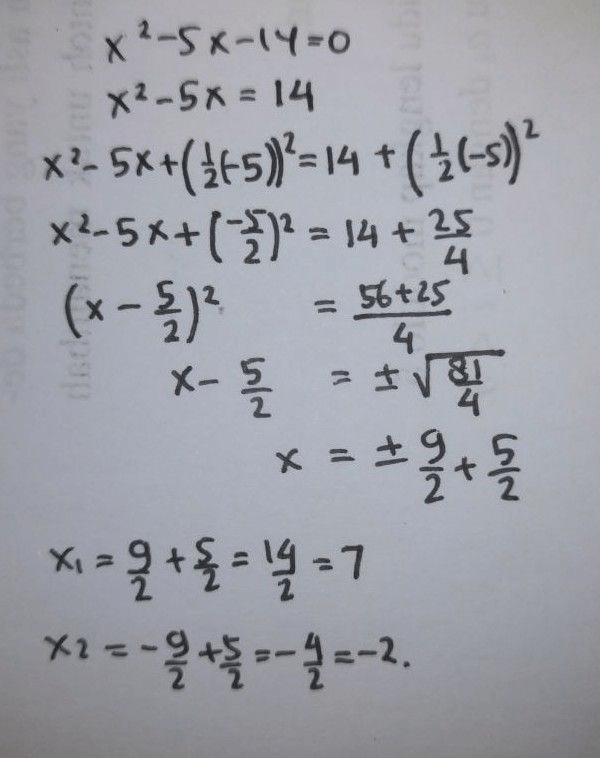 x²-5x-14=0
x²-5x = 14
x²-5x+(½(-5))²=14+(½(-5))²
x²-5x+(-5/2)² = 14+25/4
(x-5/2)² = 56+25/4
x-5/2 = ±√81/4
x = ±9/2+5/2
x₁=9/2+5/2=14/2=7
x2=-9/2+5/2=-4/2=-2.